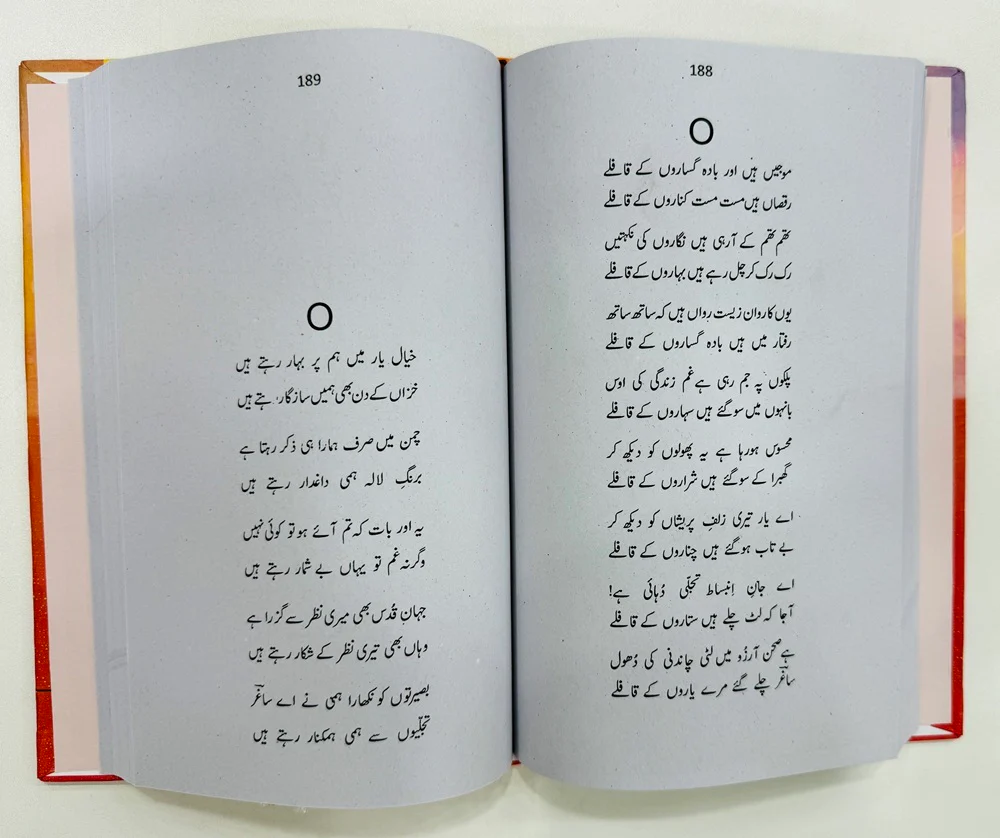 188
O
موجیں ہیں اور بادہ گساروں کے قافلے
رقصاں ہیں مست مست کناروں کے قافلے
تھم تھم کے آرہی ہیں نگاروں کی نکہتیں
رک رک کر چل رہے ہیں بہاروں کے قافلے
یوں کاروان زیست رواں ہیں کہ ساتھ ساتھ
رفتار میں ہیں بادہ گساروں کے قافلے
پلکوں پہ جم رہی ہے غم زندگی کی اوس
بانہوں میں سو گئے ہیں سہاروں کے قافلے
محسوس ہورہا ہے یہ پھولوں کو دیکھ کر
گھبرا کے سو گئے ہیں شراروں کے قافلے
اے یار تیری زلفِ پریشاں کو دیکھ کر
بے تاب ہوگئے ہیں چناروں کے قافلے
اے جانِ اِنبساط تجلّی دُہائی ہے!
آجا کہ لٹ چلے ہیں ستاروں کے قافلے
ہے صحن آرزُو میں لٹی چاندنی کی دُھول
ساغرؔ چلے گئے مرے یاروں کے قافلے
189
O
خیال یار میں ہم پر بہار رہتے ہیں
خزاں کے دن بھی ہمیں سازگار ہتے ہیں
چمن میں صرف ہمارا ہی ذکر رہتا ہے
برنگِ لالہ ہمی داغدار رہتے ہیں
یہ اور بات کہ تم آئے ہو تو کوئی نہیں
وگرنہ غم تو یہاں بے شمار رہتے ہیں
جہانِ قُدس بھی میری نظر سے گزرا ہے
وہاں بھی تیری نظر کے شکار رہتے ہیں
بصیرتوں کو نکھارا ہمی نے اے ساغرؔ
تجلّیوں سے ہمی ہمکنار رہتے ہیں